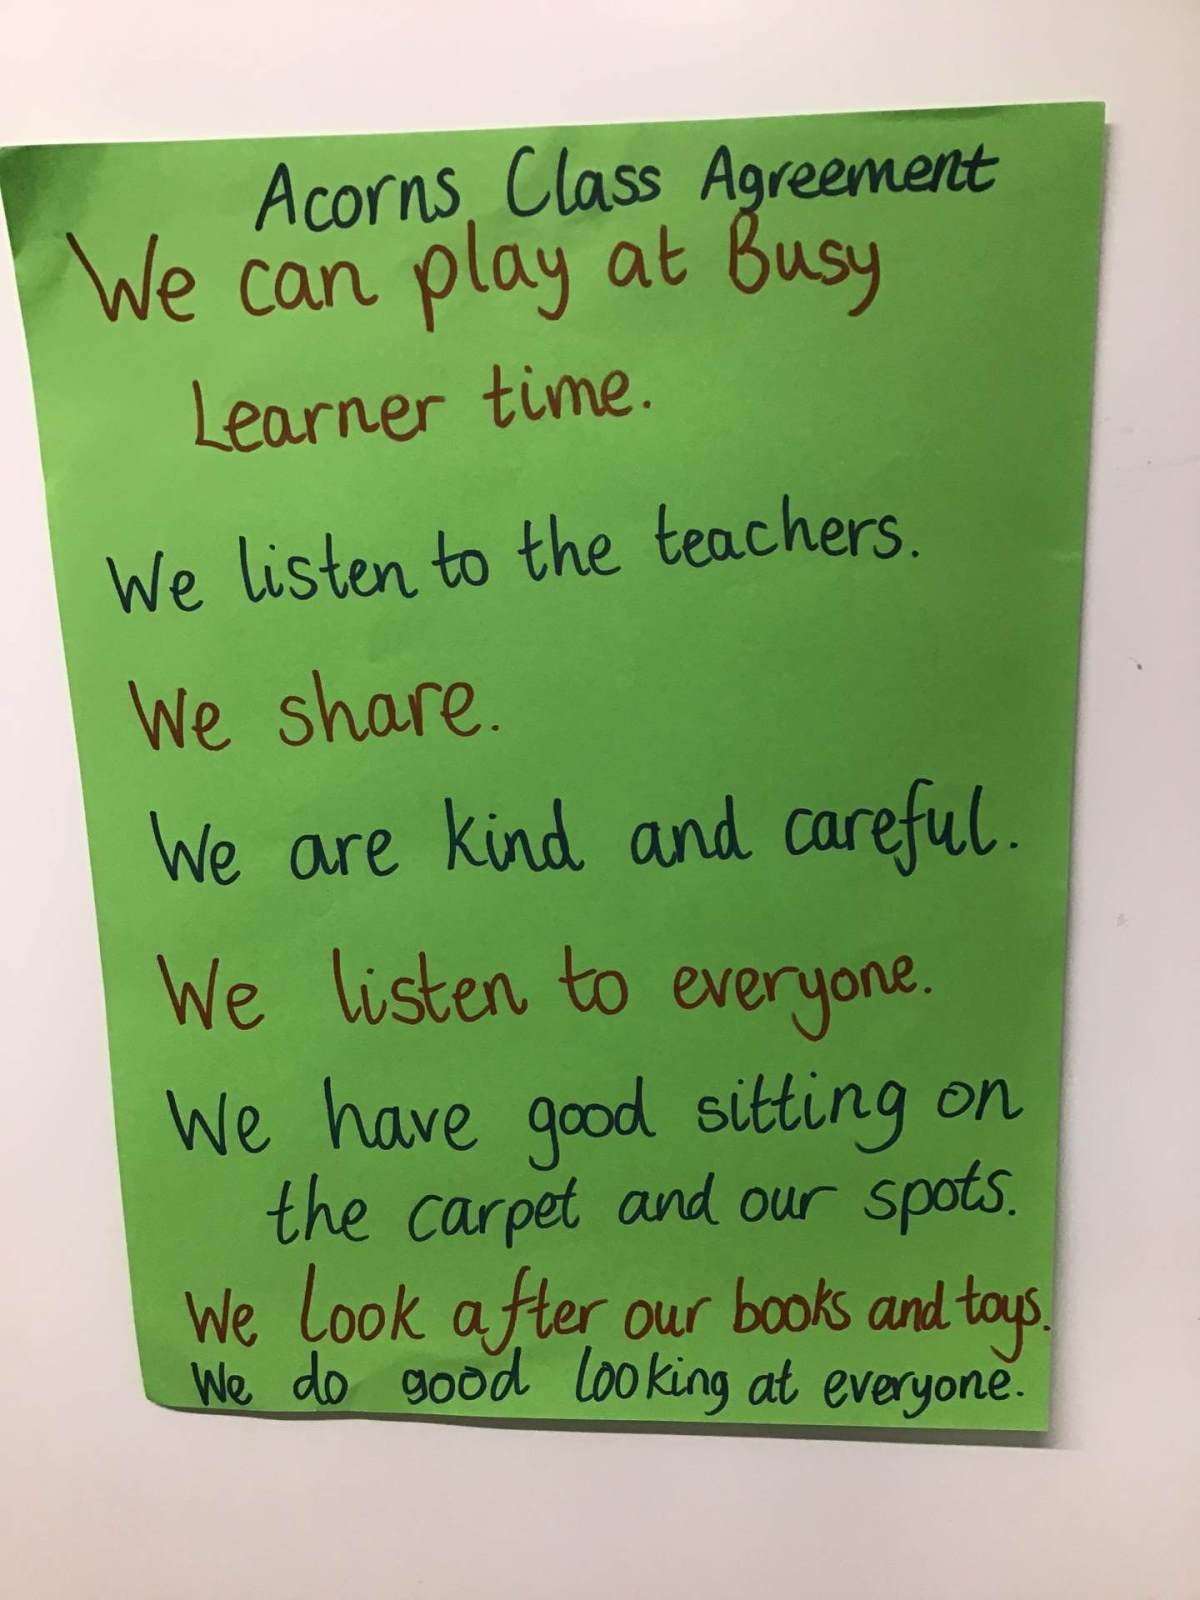 Acorns Class Agreement
We can play at Busy
Learner time.
We listen to the teachers.
We share.
We are kind and careful.
We listen to everyone.
We have good sitting on
the carpet and our spots.
We look after our books and toys.
We do good looking at everyone.